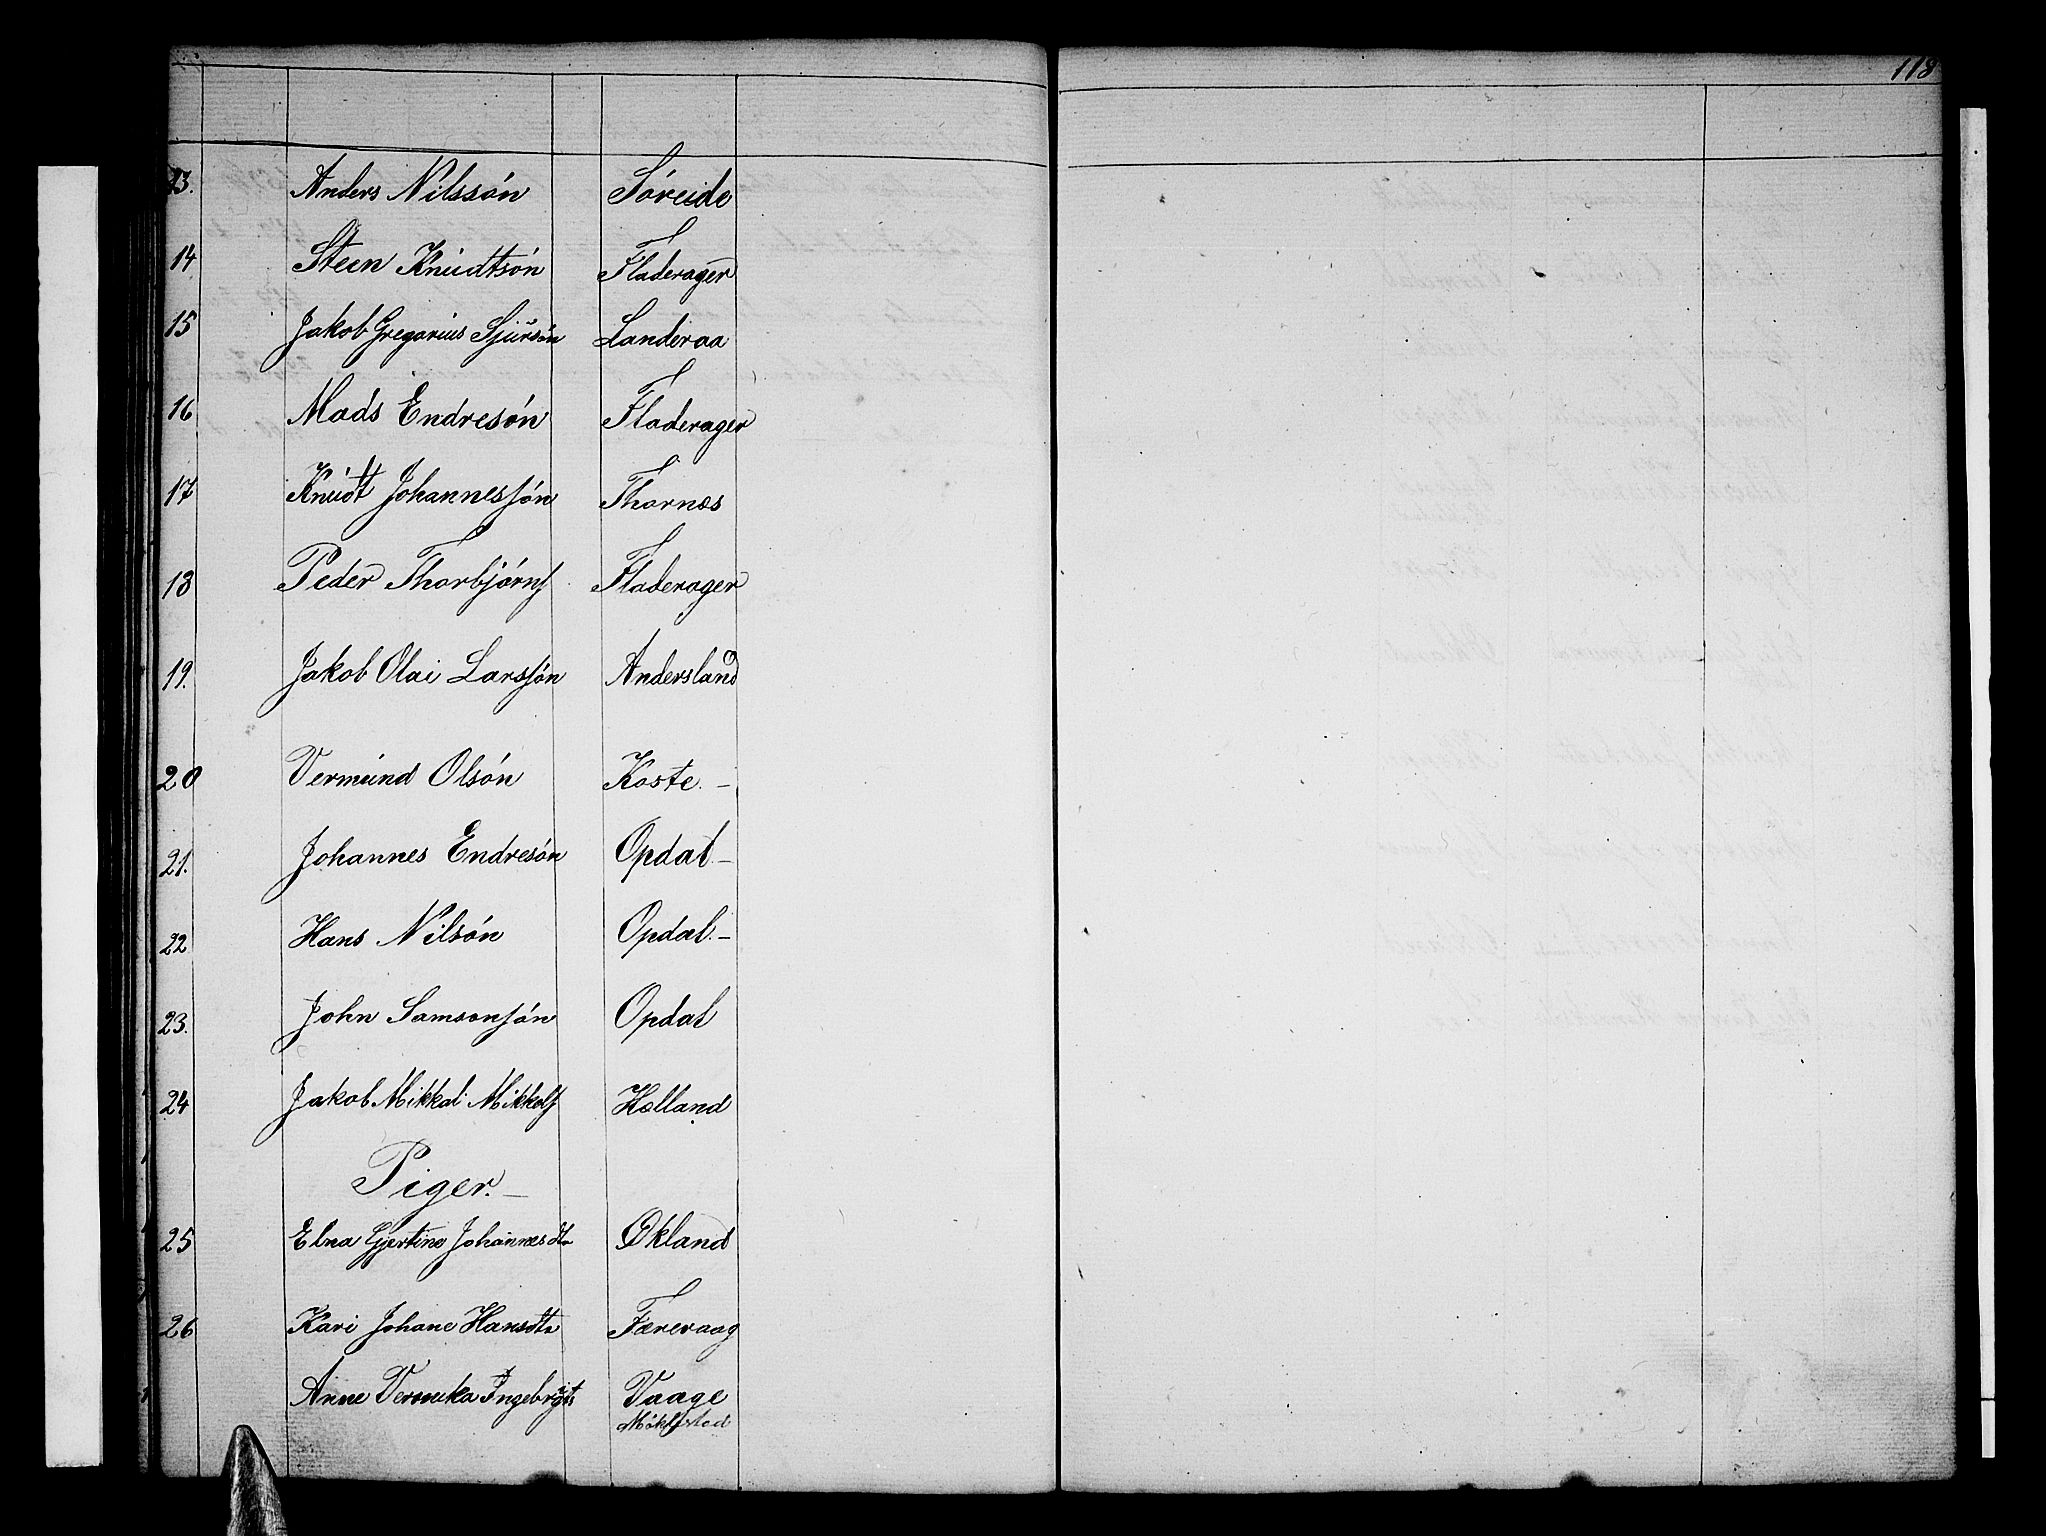 118
13. Anders Nilssón Sóreide
14 Steen Knudtsón Fladerager
15 Jakob Gregorius Sjursón Landeraa
16 Mads Endresón Fladerager
17 Knudt Johannessón Thornæs
18 Peder Thorbjórns Fladerager
19. Jakob Olai Larssón Andersland
20 Vermund Olsón Koste. –
21. Johannes Endresón Opdal –
22 Hans Nilsón Opdal. –
23. John Samsonsón Opdal
24 Jakob Mikkal Mikkels Hælland
Piger. –
25 Elna Gjertine Johannesdtr Økland
26 Kari Johane Hansdtr Færevaag
Anne Veronika Ingebrgts Vaage